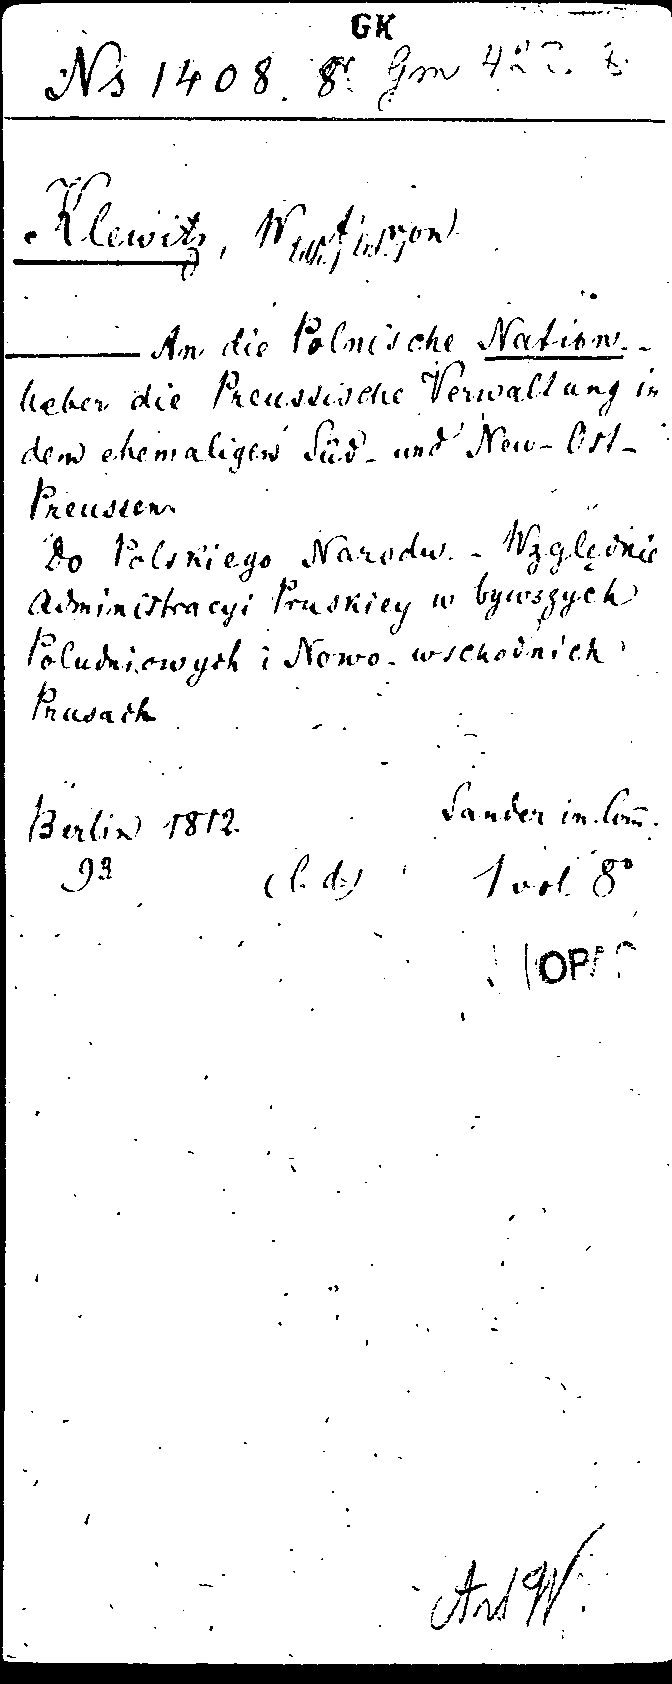 GK
Ns 1408. 8° Gm
Klewitz, W von
An die Polnische Nation. -
Ueber die Preussische Verwaltung in
dem ehemaligen Süd- und New-Ost-
Preussen.
Do Polskiego Narodu. - Względnie
Administracyi Pruskiey w bywszych
Poludniowych i Nowo-wschodnich
Prusach
Berlin 1812. Sander in Com̅.
93 1 vol 8°